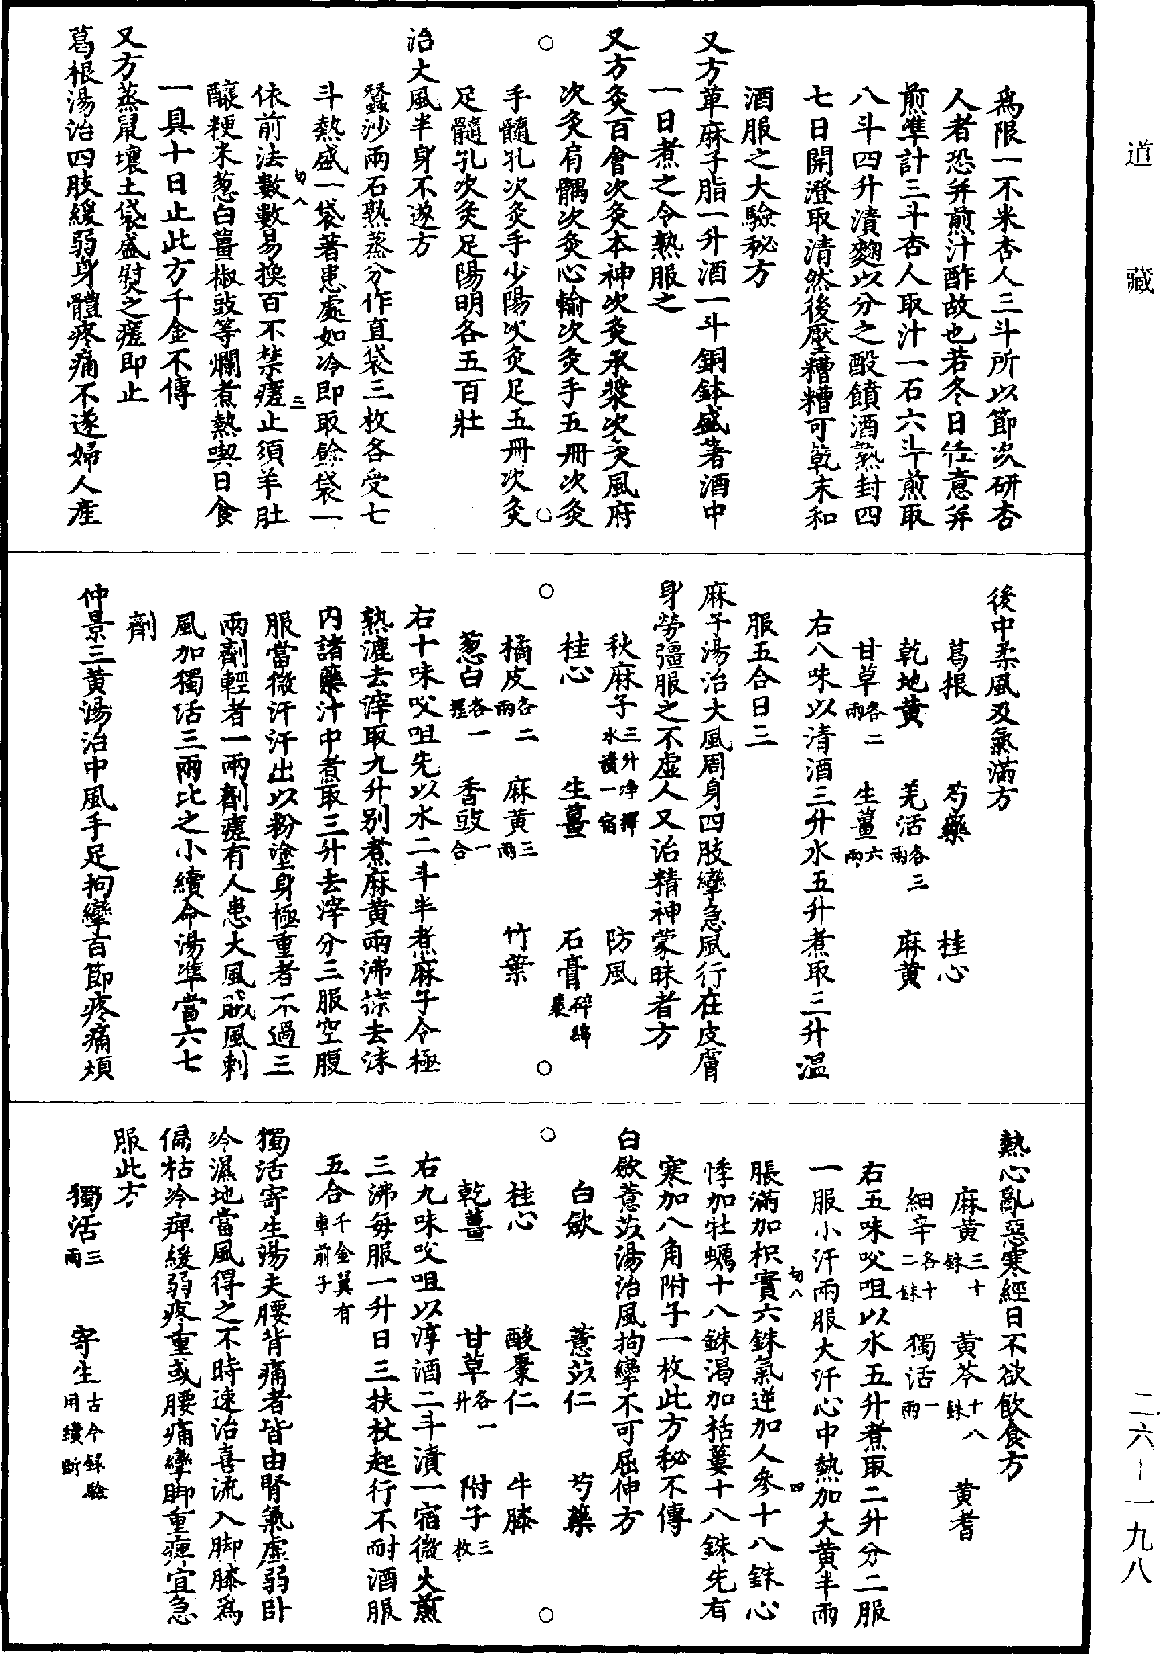 爲限一不米杏人三斗所以節次研杏
人者恐并煎汁酢故也若冬日任意并
煎準計三斗杏人取汁一石六斗煎取
八斗四升漬麴以分之酘饙酒熟封四
七日開澄取清然後壓糟糟可乾末和
酒服之大驗秘方
又方草麻子脂一升酒一斗銅鉢盛著酒中
一日煮之令熟服之
又方灸百會次灸本神次灸承漿次灸風府
次灸肩髃次灸心輸次灸手五冊次灸
手髓孔次灸手少陽次灸足五冊次灸
足髓孔次灸足陽明各五百壯
治大風半身不遂方
蠶沙兩石熟蒸分作直袋三枚各受七
斗熱盛一袋著患處如冷即取餘袋一
依前法數數易換百不禁瘥止須羊肚
釀粳米葱白薑椒豉等爛煮熱喫日食
一具十日止此方千金不傳
又方蒸鼠壤土袋盛熨之瘥即止
葛根湯治四肢緩弱身體疼痛不遂婦人產
後中柔風及氣滿方
葛根 芍藥 桂心
乾地黃 羌活各三兩 麻黃
甘草各二兩 生薑六兩
右八味以清酒三升水五升煮取三升溫
服五合日三
麻子湯治大風周身四肢攣急風行在皮膚
身勞彊服之不虛人又治精神蒙昧者方
秋麻子三升淨擇水漬一宿 防風
桂心 生薑 石膏碎綿裹
橘皮各二兩 麻黃三兩 竹葉
葱白各一握 香豉一合
右十味㕮咀先以水二斗半煮麻子令極
熟漉去滓取九升別煮麻黃兩沸掠去沫
內諸藥汁中煮取三升去滓分三服空腹
服當微汗汗出以粉塗身極重者不過三
兩劑輕者一兩劑瘥有人患大風賊風刺
風加獨活三兩比之小續命湯準當六七
劑
仲景三黃湯治中風手足拘攣百節疼痛煩
熱心亂惡寒經日不欲飲食方
麻黃三十銖 黃芩十八銖 黃耆
細辛各十二銖 獨活一兩
右五味㕮咀以水五升煮取二升分二服
一服小汗兩服大汗心中熱加大黃半兩
脹滿加枳實六銖氣逆加人參十八銖心
悸加牡蠣十八銖渴加栝蔞十八銖先有
寒加八角附子一枚此方秘不傳
白斂薏苡湯治風拘攣不可屈伸方
白斂 薏苡仁 芍藥
桂心 酸棗仁 牛膝
乾薑 甘草各一升 附子三枚
右九味㕮咀以淳酒二斗漬一宿微火煎
三沸每服一升日三扶杖起行不耐酒服
五合千金翼有車前子
獨活寄生湯夫腰背痛者皆由腎氣虛弱卧
冷濕地當風得之不時速治喜流入脚膝爲
偏枯冷痺緩弱疼重或腰痛攣脚重痺宜急
服此方
獨活三兩 寄生古今錄驗用續斷
道 藏
二六-一九八